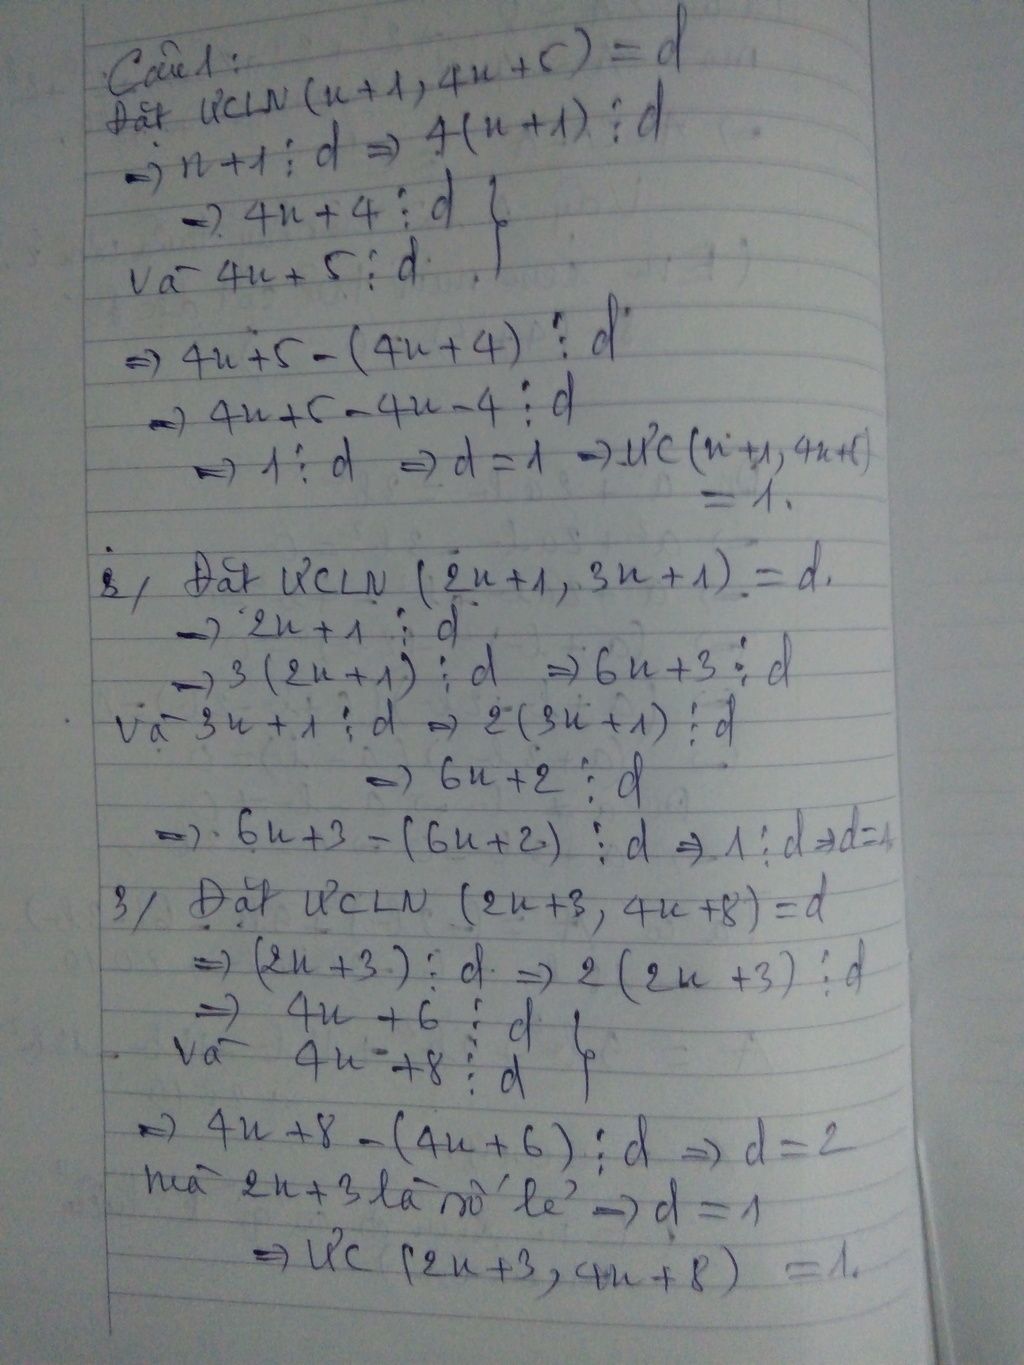 Câu 1:
Đặt ƯCLN (n+1, 4n+5) = d
⇒ n+1 ⋮ d ⇒ 4(n+1) ⋮ d
⇒ 4n+4 ⋮ d }
Và 4n+5 ⋮ d
⇒ 4n+5-(4n+4) ⋮ d
⇒ 4n+5-4n-4 ⋮ d
⇒ 1 ⋮ d ⇒ d=1 ⇒ ƯC(n+1, 4n+5)
= 1.
2/ Đặt ƯCLN (2n+1, 3n+1) = d.
⇒ 2n+1 ⋮ d
⇒ 3(2n+1) ⋮ d ⇒ 6n+3 ⋮ d
Và 3n+1 ⋮ d ⇒ 2(3n+1) ⋮ d
⇒ 6n+2 ⋮ d
⇒ 6n+3-(6n+2) ⋮ d ⇒ 1 ⋮ d ⇒ d=1
3/ Đặt ƯCLN (2n+3, 4n+8) = d
⇒ (2n+3) ⋮ d ⇒ 2(2n+3) ⋮ d
⇒ 4n+6 ⋮ d }
Và 4n+8 ⋮ d
⇒ 4n+8-(4n+6) ⋮ d ⇒ d=2
mà 2n+3 là số lẻ ⇒ d=1
⇒ ƯC (2n+3, 4n+8) = 1.